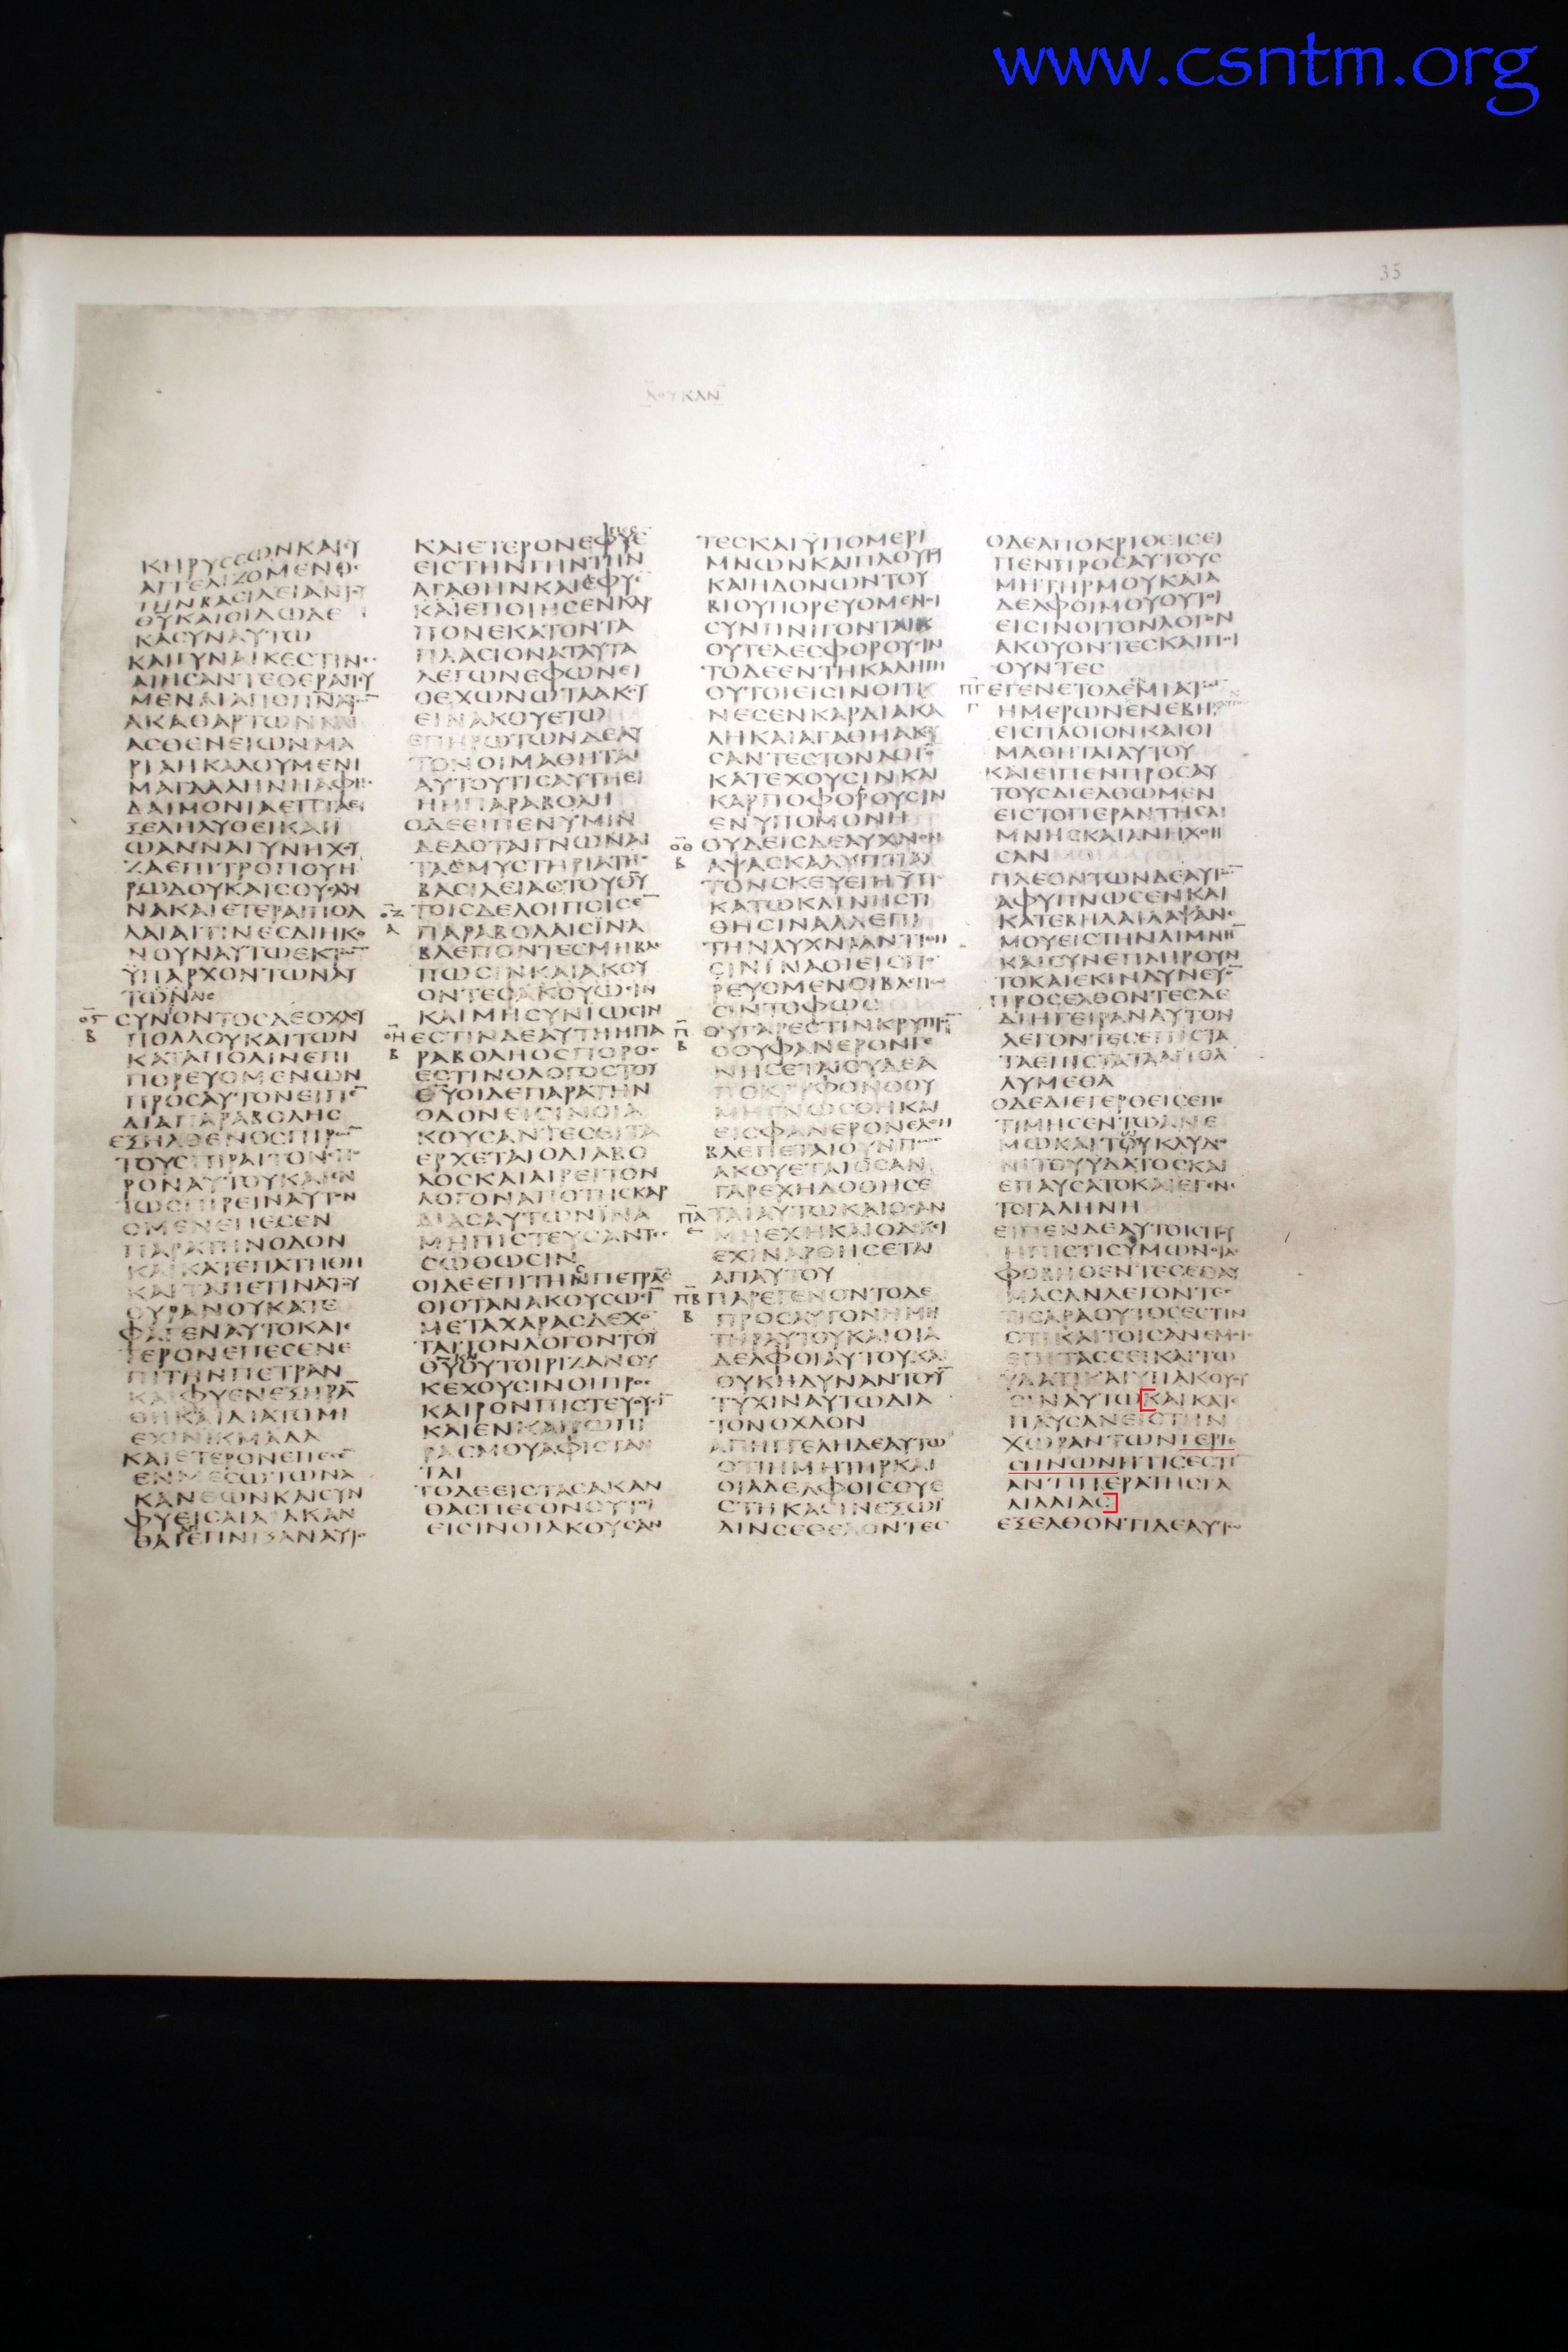 www.csntm.org
35
ΛΟΥΚΑΝ
ΚΗΡΥССΩΝΚΑΙΕΥ
ΑΓΓΕΛΙΖΟΜΕΝΟС
ΤΗΝΒΑСΙΛΕΙΑΝΤΟΥ
ΘΥΚΑΙΟΙΔΩΔΕ
ΚΑСΥΝΑΥΤΩ
ΚΑΙΓΥΝΑΙΚΕСΤΙΝΕС
ΑΙΗСΑΝΤΕΘΕΡΑΠΕΥ
ΜΕΝΑΙΑΠΟΠΝΑΤΩ
ΑΚΑΘΑΡΤΩΝΚΑΙ
ΑСΘΕΝΕΙΩΝΜΑ
ΡΙΑΗΚΑΛΟΥΜΕΝΗ
ΜΑΓΔΑΛΗΝΗΑΦΗС
ΔΑΙΜΟΝΙΑΕΠΤΑΕ
ΞΕΛΗΛΥΘΕΙΚΑΙΙ
ΩΑΝΝΑΓΥΝΗΧΟΥ
ΖΑΕΠΙΤΡΟΠΟΥΗ
ΡΩΔΟΥΚΑΙСΟΥСΑΝ
ΝΑΚΑΙΕΤΕΡΑΙΠΟΛ
ΛΑΙΑΙΤΙΝΕСΔΙΗΚΟ
ΝΟΥΝΑΥΤΩΕΚΤΩ
ΫΠΑΡΧΟΝΤΩΝΑΥ
ΤΩΝ
СΥΝΟΝΤΟСΔΕΟΧΛΟΥ
ΠΟΛΛΟΥΚΑΙΤΩΝ
ΚΑΤΑΠΟΛΙΝΕΠΙ
ΠΟΡΕΥΟΜΕΝΩΝ
ΠΡΟСΑΥΤΟΝΕΙΠΕ
ΔΙΑΠΑΡΑΒΟΛΗС
ΕΞΗΛΘΕΝΟСΠΙΡΩ
ΤΟΥСΠΙΡΑΙΤΟΝСΠΟ
ΡΟΝΑΥΤΟΥΚΑΙΕΝ
ΤΩСΠΙΡΕΙΝΑΥΤΟΝ
ΟΜΕΝΕΠΕСΕΝ
ΠΑΡΑΤΗΝΟΔΟΝ
ΚΑΙΚΑΤΕΠΑΤΗΘΗ
ΚΑΙΤΑΠΕΤΙΝΑΤΟΥ
ΟΥΡΑΝΟΥΚΑΤΕ
ΦΑΓΕΝΑΥΤΟΚΑΙΕ
ΤΕΡΟΝΕΠΕСΕΝΕ
ΠΙΤΗΝΠΕΤΡΑΝ
ΚΑΙΦΥΕΝΕΞΗΡΑ
ΘΗΚΑΙΔΙΑΤΟΜΗ
ΕΧΙΝΙΚΜΑΔΑ
ΚΑΙΕΤΕΡΟΝΕΠΕСΕ
ΕΝΜΕСΩΤΩΝΑ
ΚΑΝΘΩΝΚΑΙСΥΝ
ΦΥΕΙСΑΙΑΙΑΚΑΝ
ΘΑΙΕΠΝΙΞΑΝΑΥΤΟ
ΚΑΙΕΤΕΡΟΝΕΦΥΕ
ΕΙСΤΗΝΓΗΝΤΗΝ
ΑΓΑΘΗΝΚΑΙΕΦΥΕ
ΚΑΙΕΠΟΙΗСΕΝΚΑΡ
ΠΟΝΕΚΑΤΟΝΤΑ
ΠΛΑСΙΟΝΑΤΑΥΤΑ
ΛΕΓΩΝΕΦΩΝΕΙ
ΟΕΧΩΝΩΤΑΑΚΟΥ
ΕΙΝΑΚΟΥΕΤΩ
ΕΠΗΡΩΤΩΝΔΕΑΥ
ΤΟΝΟΙΜΑΘΗΤΑΙ
ΑΥΤΟΥΤΙСΑΥΤΗΕΙ
ΗΗΠΑΡΑΒΟΛΗ
ΟΔΕΕΙΠΕΝΥΜΙΝ
ΔΕΔΟΤΑΙΓΝΩΝΑΙ
ΤΑΜΥСΤΗΡΙΑΤΗС
ΒΑСΙΛΕΙΑСΤΟΥΘΥ
ΤΟΙСΔΕΛΟΙΠΟΙСΕ
ΠΑΡΑΒΟΛΑΙСΪΝΑ
ΒΛΕΠΟΝΤΕСΜΗΒΛΕ
ΠΩСΙΝΚΑΙΑΚΟΥ
ΟΝΤΕСΑΚΟΥΩСΙΝ
ΚΑΙΜΗСΥΝΙΩСΙΝ
ΕСΤΙΝΔΕΑΥΤΗΗΠΑ
ΡΑΒΟΛΗΟСΠΟΡΟС
ΕСΤΙΝΟΛΟΓΟСΤΟΥ
ΘΥΟΙΔΕΠΑΡΑΤΗΝ
ΟΔΟΝΕΙСΙΝΟΙΑ
ΚΟΥСΑΝΤΕСΕΙΤΑ
ΕΡΧΕΤΑΙΟΔΙΑΒΟ
ΛΟСΚΑΙΑΙΡΕΙΤΟΝ
ΛΟΓΟΝΑΠΟΤΗСΚΑΡ
ΔΙΑСΑΥΤΩΝΪΝΑ
ΜΗΠΙСΤΕΥСΑΝΤΕС
СΩΘΩСΙΝ
ΟΙΔΕΕΠΙΤΗΝΠΕΤΡΑ
ΟΙΟΤΑΝΑΚΟΥСΩСΙ
ΜΕΤΑΧΑΡΑСΔΕΧΟ
ΤΑΙΤΟΝΛΟΓΟΝΤΟΥ
ΘΥΟΥΤΟΙΡΙΖΑΝΟΥ
ΚΕΧΟΥСΙΝΟΙΠΡΟС
ΚΑΙΡΟΝΠΙСΤΕΥΟΥСΙ
ΚΑΙΕΝΚΑΙΡΩΠΙ
ΡΑСΜΟΥΑΦΙСΤΑΝ
ΤΑΙ
ΤΟΔΕΕΙСΤΑСΑΚΑΝ
ΘΑСΠΕСΟΝΟΥΤΟΙ
ΕΙСΙΝΟΙΑΚΟΥСΑΝ
ΤΕСΚΑΙΫΠΟΜΕΡΙ
ΜΝΩΝΚΑΙΠΛΟΥΤΟΥ
ΚΑΙΗΔΟΝΩΝΤΟΥ
ΒΙΟΥΠΟΡΕΥΟΜΕΝΟΙ
СΥΝΠΝΙΓΟΝΤΑΙΚΑΙ
ΟΥΤΕΛΕСΦΟΡΟΥСΙΝ
ΤΟΔΕΕΝΤΗΚΑΛΗΓΗ
ΟΥΤΟΙΕΙСΙΝΟΙΤΙ
ΝΕСΕΝΚΑΡΔΙΑΚΑ
ΛΗΚΑΙΑΓΑΘΗΑΚΟΥ
СΑΝΤΕСΤΟΝΛΟΓΟ
ΚΑΤΕΧΟΥСΙΝΚΑΙ
ΚΑΡΠΟΦΟΡΟΥСΙΝ
ΕΝΥΠΟΜΟΝΗ
ΟΥΔΕΙСΔΕΛΥΧΝΟΝ
ΑΨΑСΚΑΛΥΠΤΕΙΑΥ
ΤΟΝСΚΕΥΕΙΗΫΠΟ
ΚΑΤΩΚΛΙΝΗСΤΙ
ΘΗСΙΝΑΛΛΕΠΙ
ΤΗΝΛΥΧΝΙΑΝΤΙΘΗ
СΙΝΙΝΑΟΙΕΙСΠΟ
ΡΕΥΟΜΕΝΟΙΒΛΕΠΩ
СΙΝΤΟΦΩС
ΟΥΓΑΡΕСΤΙΝΚΡΥΠΤΟ
ΟΟΥΦΑΝΕΡΟΝΓΕ
ΝΗСΕΤΑΙΟΥΔΕΑ
ΠΟΚΡΥΦΟΝΟΟΥ
ΜΗΓΝΩСΘΗΚΑΙ
ΕΙСΦΑΝΕΡΟΝΕΛΘΗ
ΒΛΕΠΕΤΑΙΟΥΝΠΩС
ΑΚΟΥΕΤΑΙΟСΑΝ
ΓΑΡΕΧΗΔΟΘΗСΕ
ΤΑΙΑΥΤΩΚΑΙΟСΑΝ
ΜΗΕΧΗΚΑΙΟΔΟΚΙ
ΕΧΙΝΑΡΘΗСΕΤΑΙ
ΑΠΑΥΤΟΥ
ΠΑΡΕΓΕΝΟΝΤΟΔΕ
ΠΡΟСΑΥΤΟΝΗΜΗ
ΤΗΡΑΥΤΟΥΚΑΙΟΙΑ
ΔΕΛΦΟΙΑΥΤΟΥΚΑΙ
ΟΥΚΗΔΥΝΑΝΤΟСΥ
ΤΥΧΙΝΑΥΤΩΔΙΑ
ΤΟΝΟΧΛΟΝ
ΑΠΗΓΓΕΛΗΔΕΑΥΤΩ
ΟΤΙΗΜΗΤΗΡΚΑΙ
ΟΙΑΔΕΛΦΟΙСΟΥΕ
СΤΗΚΑСΙΝΕΞΩΙ
ΔΙΝСΕΘΕΛΟΝΤΕС
ΟΔΕΑΠΟΚΡΙΘΕΙСΕΙ
ΠΕΝΠΡΟСΑΥΤΟΥС
ΜΗΤΗΡΜΟΥΚΑΙΑ
ΔΕΛΦΟΙΜΟΥΟΥΤΟΙ
ΕΙСΙΝΟΙΤΟΝΛΟΓΟΝ
ΑΚΟΥΟΝΤΕСΚΑΙΠΟΙ
ΟΥΝΤΕС
ΕΓΕΝΕΤΟΔΕΜΙΑΤΩ
ΗΜΕΡΩΝΕΝΕΒΗ
ΕΙСΠΛΟΙΟΝΚΑΙΟΙ
ΜΑΘΗΤΑΙΑΥΤΟΥ
ΚΑΙΕΙΠΕΝΠΡΟСΑΥ
ΤΟΥСΔΙΕΛΘΩΜΕΝ
ΕΙСΤΟΠΕΡΑΝΤΗСΛΙ
ΜΝΗСΚΑΙΑΝΗΧΘΗ
СΑΝ
ΠΛΕΟΝΤΩΝΔΕΑΥΤΩ
ΑΦΥΠΝΩСΕΝΚΑΙ
ΚΑΤΕΒΗΛΑΙΛΑΨΑΝΕ
ΜΟΥΕΙСΤΗΝΛΙΜΝΗ
ΚΑΙСΥΝΕΠΛΗΡΟΥΝ
ΤΟΚΑΙΕΚΙΝΔΥΝΕΥΟ
ΠΡΟСΕΛΘΟΝΤΕСΔΕ
ΔΙΗΓΕΙΡΑΝΑΥΤΟΝ
ΛΕΓΟΝΤΕСΕΠΙСΤΑ
ΤΑΕΠΙСΤΑΤΑΑΠΟΛ
ΛΥΜΕΘΑ
ΟΔΕΔΙΕΓΕΡΘΕΙСΕΠΕ
ΤΙΜΗСΕΝΤΩΑΝΕ
ΜΩΚΑΙΤΩΚΛΥΔΩ
ΝΙΤΟΥΥΔΑΤΟСΚΑΙ
ΕΠΑΥСΑΤΟΚΑΙΕΓΕΝΕ
ΤΟΓΑΛΗΝΗ
ΕΙΠΕΝΔΕΑΥΤΟΙСΠΟΥ
ΗΠΙСΤΙСΥΜΩΝ
ΦΟΒΗΘΕΝΤΕСΕΘΑΥ
ΜΑСΑΝΛΕΓΟΝΤΕС
ΤΙСΑΡΑΟΥΤΟСΕСΤΙΝ
ΟΤΙΚΑΙΤΟΙСΑΝΕΜΟΙС
ΕΠΙΤΑССΕΙΚΑΙΤΩ
ΥΔΑΤΙΚΑΙΥΠΑΚΟΥΟΥ
СΙΝΑΥΤΩΚΑΙΚΑΤΕ
ΠΛΕΥСΑΝΕΙСΤΗΝ
ΧΩΡΑΝΤΩΝΓΕΡΓΕ
СΗΝΩΝΗΤΙСΕСΤΙ
ΑΝΤΙΠΕΡΑΤΗСΓΑ
ΛΙΛΑΙΑС
ΕΞΕΛΘΟΝΤΙΔΕΑΥΤΩ